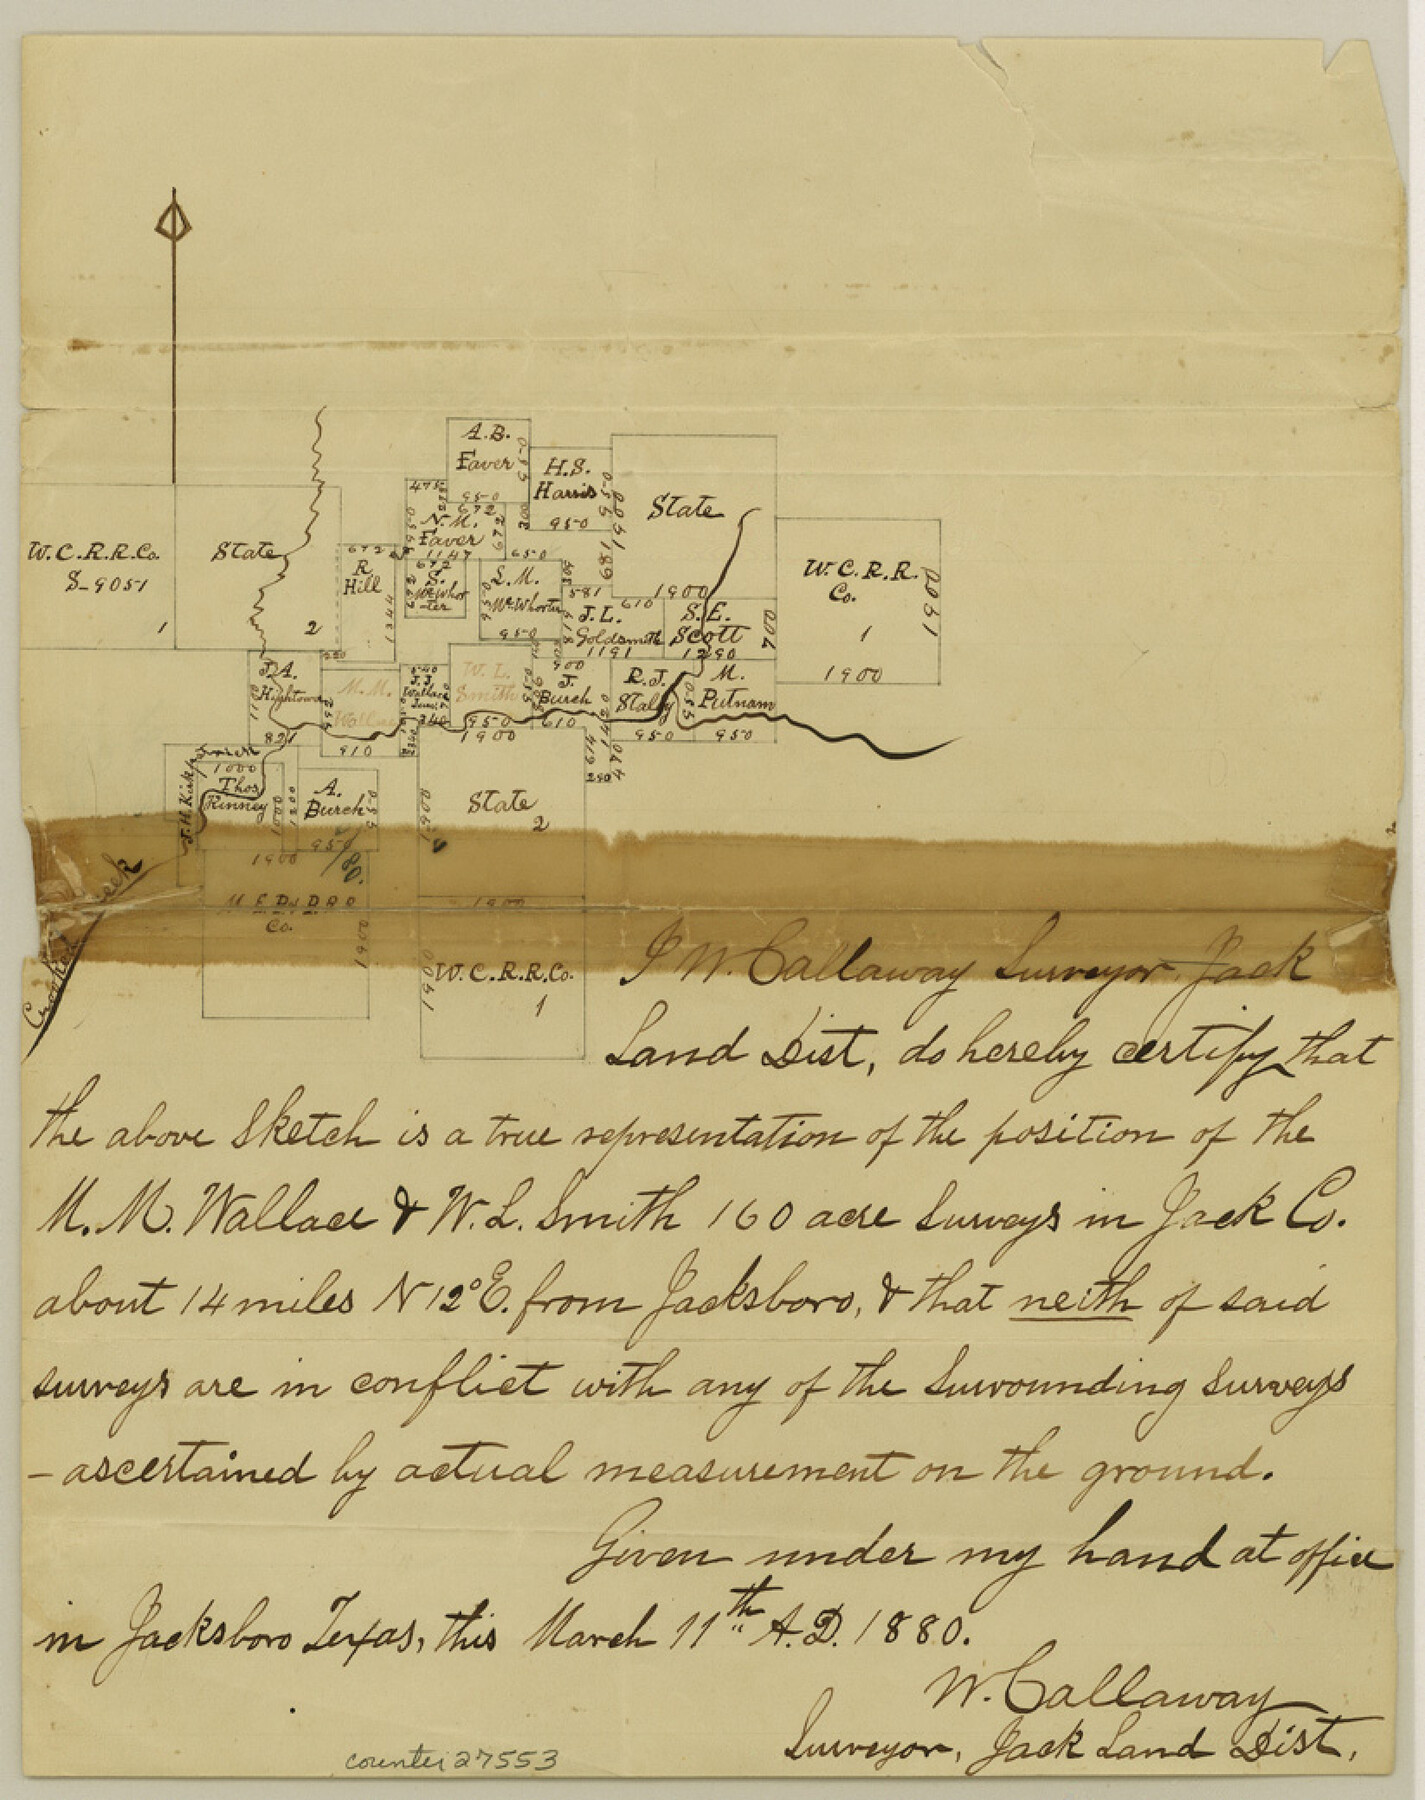 A. B.
Faver
950
H. S.
Harris
950
State
1900
1900
475
672
N. M.
Faver
672
1147
650
W. C. R. R. Co.
S-9051
1
State
2
672
R
Hill
1344
672
S.
McWhor
ter
L. M.
McWhorter
950
950
581
J. L.
Goldsmith
1191
610
S. E.
Scott
1290
700
W. C. R. R.
Co.
1
1900
1900
J. A.
Hightower
821
M. M.
Wallace
910
540
J. J.
Wallace
340
W. L.
Smith
950
1900
900
J.
Burch
610
R. J.
Staley
950
M.
Putnam
950
290
470
J. H. Kirk
1000
Thos
Kinney
1000
1200
A.
Burch
950
1900
State
2
1900
1900
Co.
1900
W. C. R. R. Co.
1
1900
Crooked
eek
I W. Callaway Surveyor Jack
Land Dist, do hereby certify that
the above Sketch is a true representation of the position of the
M. M. Wallace & W. L. Smith 160 acre Surveys in Jack Co.
about 14 miles N 12° E. from Jacksboro, & that neith of said
surveys are in conflict with any of the Surrounding Surveys
- ascertained by actual measurement on the ground.
Given under my hand at office
in Jacksboro Texas, this March 11th A. D. 1880.
W. Callaway
Surveyor, Jack Land Dist,
counter 27553